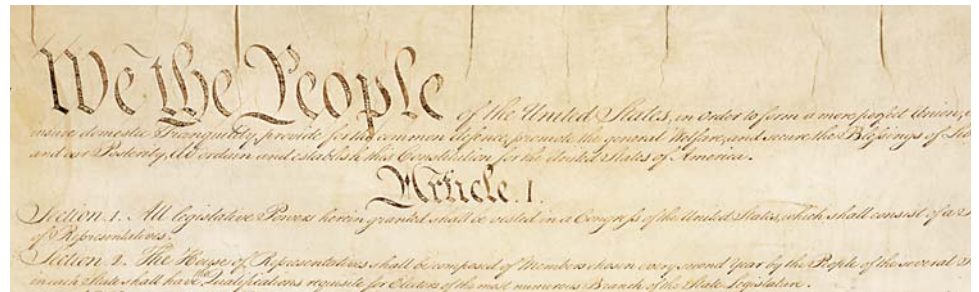 We the People of the United States, in Order to form a more perfect Union,
insure domestic Tranquility, provide for the common defence, promote the general Welfare, and secure the Blessings of
and our Posterity, do ordain and establish this Constitution for the United States of America.
Article. I.
Section. 1. All legislative Powers herein granted shall be vested in a Congress of the United States, which shall consist of a
of Representatives.
Section. 2. The House of Representatives shall be composed of Members chosen every second Year by the People of the several
in each State shall have Qualifications requisite for Electors of the most numerous Branch of the State Legislature.